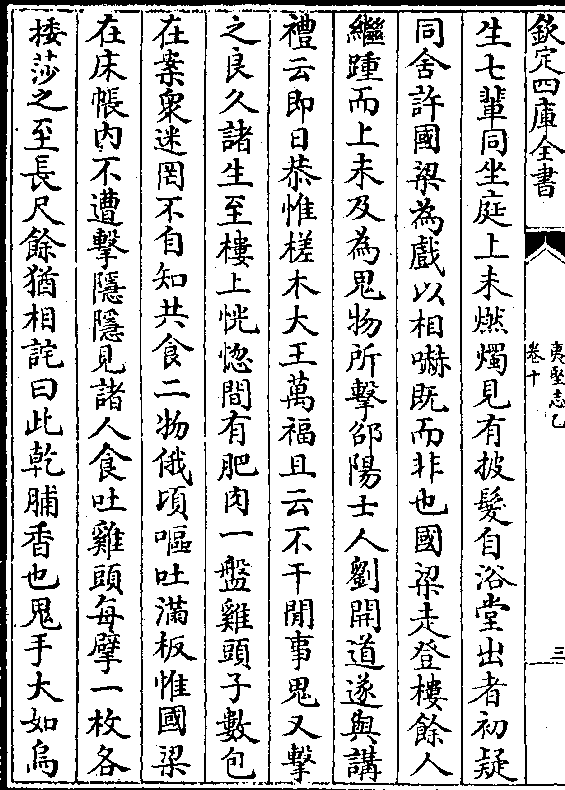 欽定四庫全書
夷堅志乙
卷十
三
生七輩同坐庭上未燃燭見有披髮自浴堂出者初疑
同舍許國梁為戲以相嚇既而非也國梁走登樓餘人
繼踵而上未及為鬼物所擊邵陽士人劉開道遂與講
禮云即日恭惟槎木大王萬福且云不干閒事鬼又擊
之良久諸生至樓上恍惚間有肥肉一盤雞頭子數包
在案衆迷罔不自知共食二物俄頃嘔吐滿板惟國梁
在床帳內不遭擊隱隱見諸人食吐雞頭每擘一枚各
捼莎之至長尺餘猶相詫曰此乾脯香也鬼手大如烏